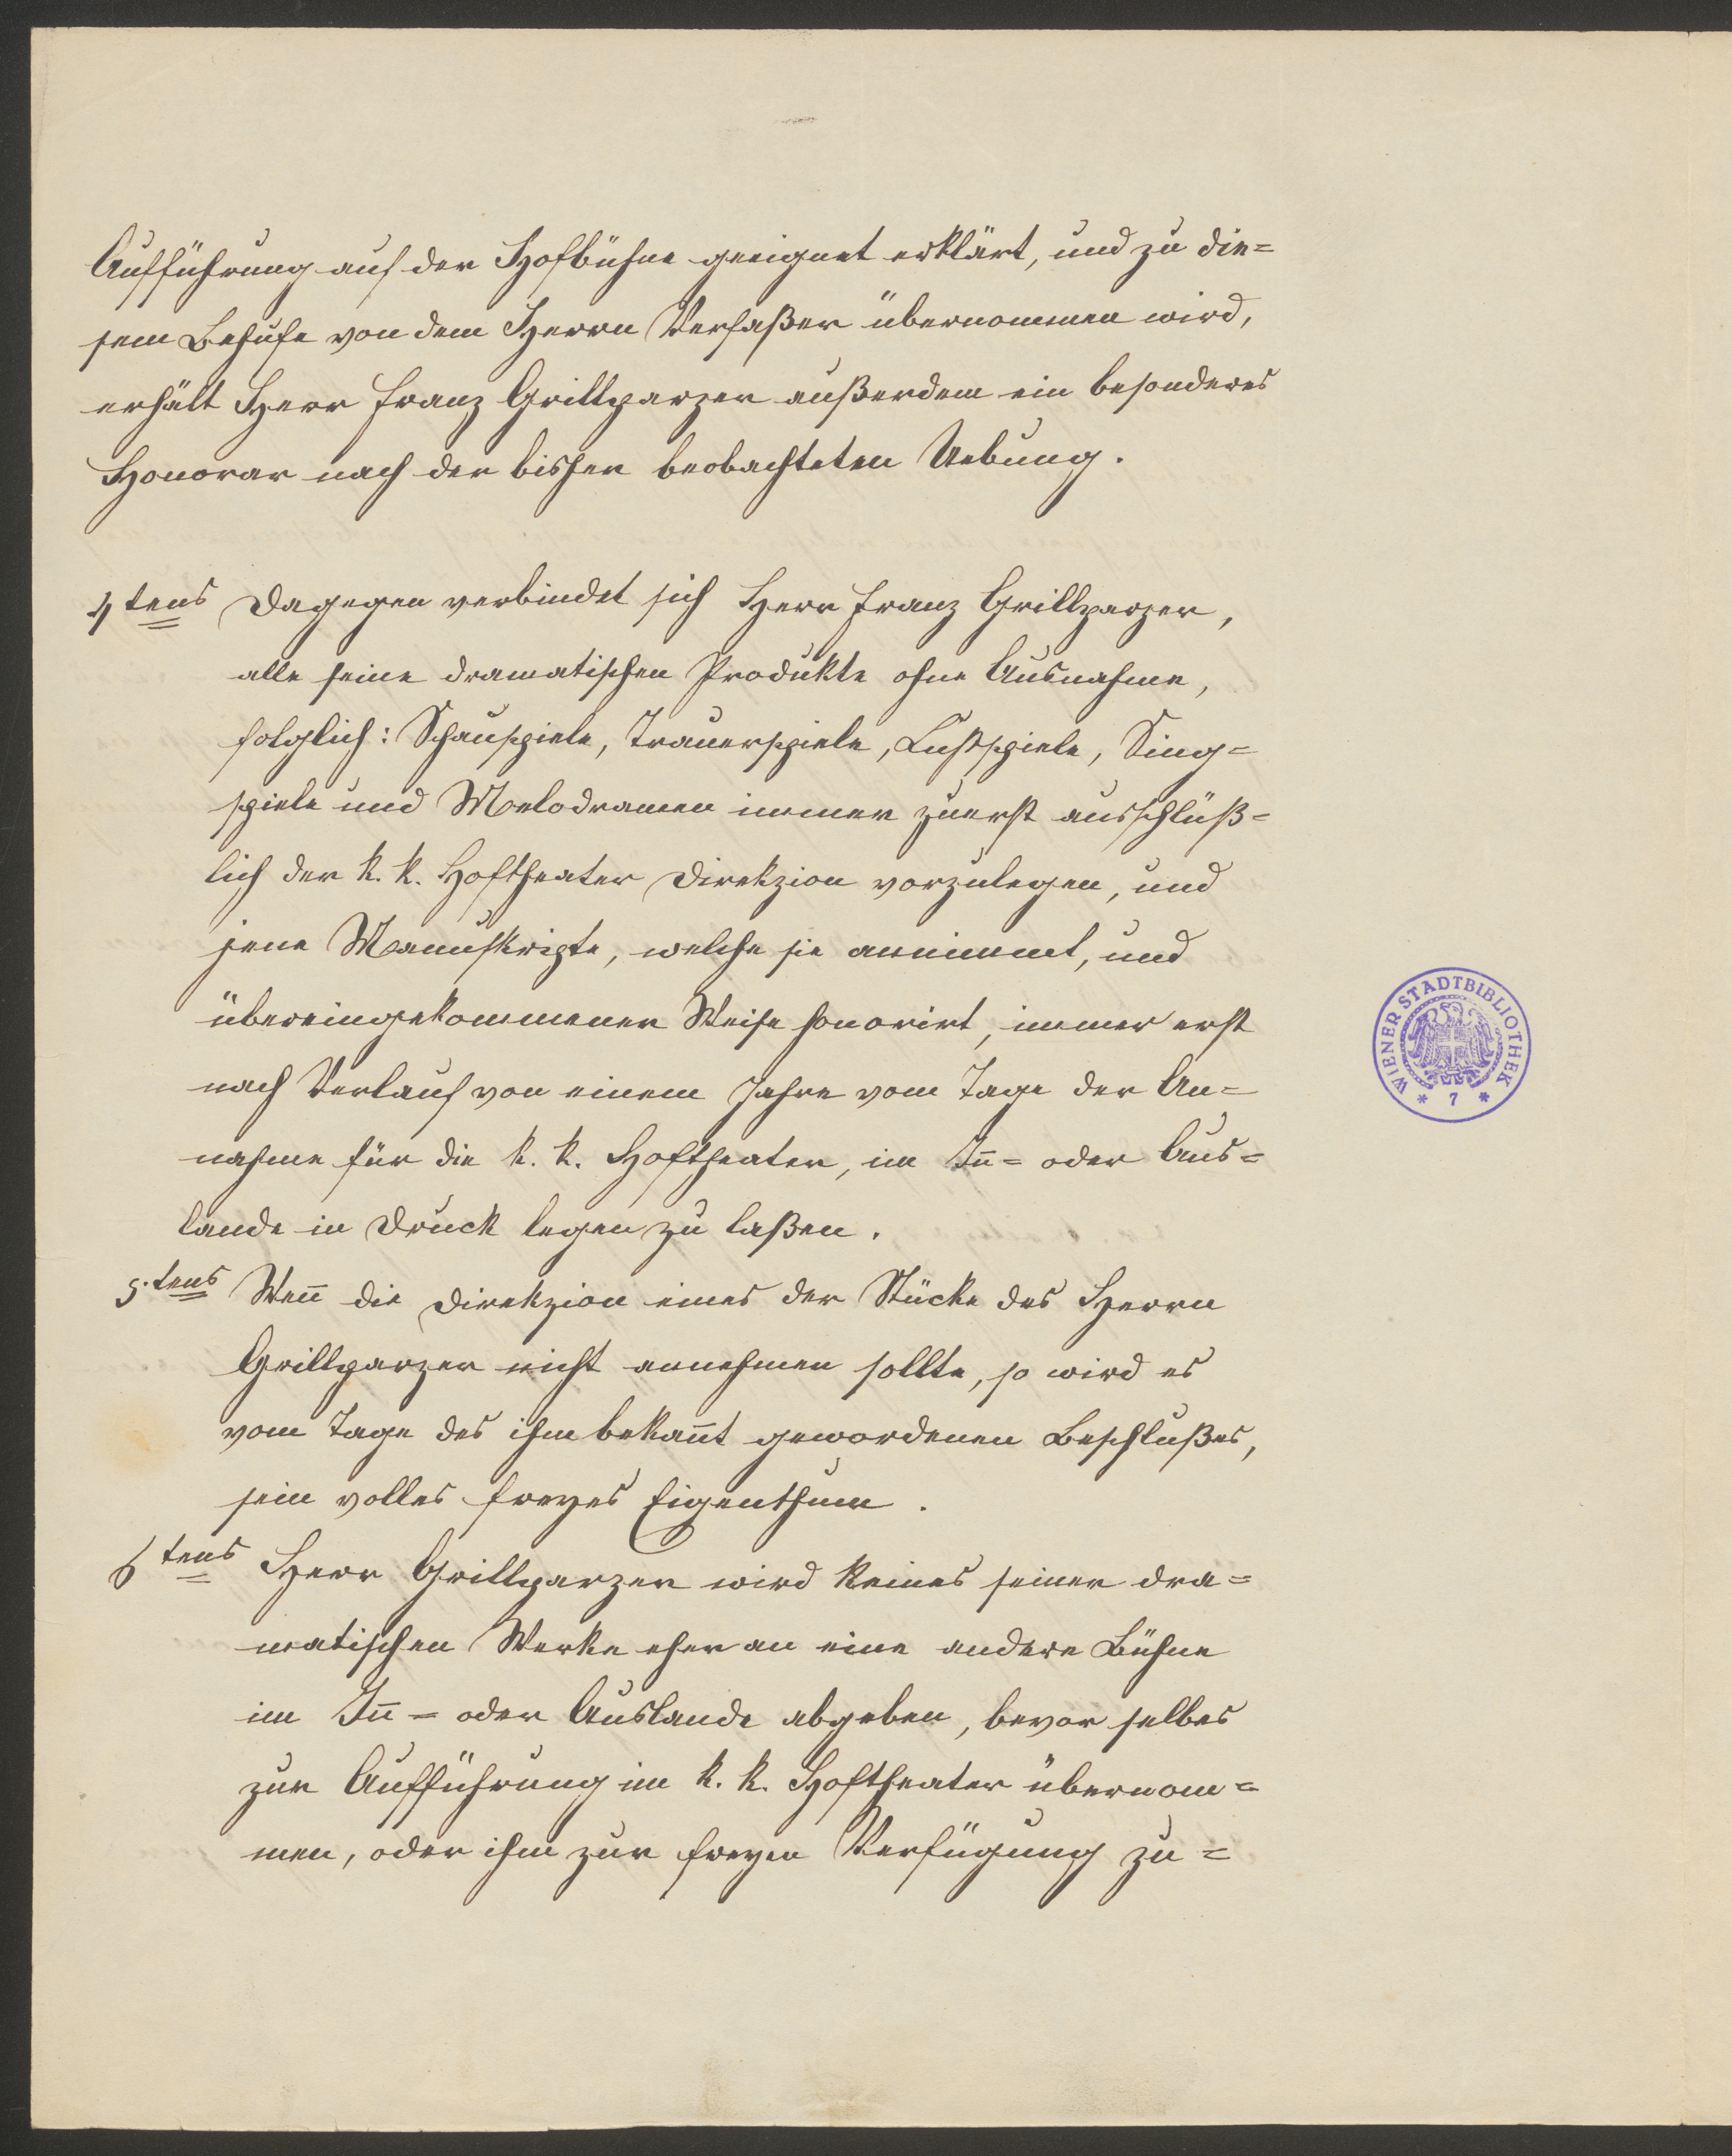 Aufführung auf der Hofbühne geeignet erklärt, und zu die=
sem Behufe von dem Herrn Verfaßer übernommen wird,
erhält Herr Franz Grillparzer außerdem ein besonderes
Honorar nach der bisher beobachteten Uebung.
4tens Dagegen verbindet sich Herr Franz Grillparzer,
alle seine dramatischen Produkte ohne Ausnahme,
folglich: Schauspiele, Trauerspiele, Lustspiele, Sing=
spiele und Melodramen immer zuerst ausschlüß=
lich der k. k. Hoftheater Direkzion vorzulegen, und
jene Manuskripte, welche sie annimmt, und
übereingekommener Weise honorirt, immer erst
nach Verlauf von einem Jahre vom Tage der An=
nahme für die k. k. Hoftheater, im In̅= oder Aus=
lande in Druck legen zu laßen.
5.tens Wen̅ die Direkzion eines der Stücke des Herrn
Grillparzer nicht annehmen sollte, so wird es
vom Tage des ihm bekan̅t gewordenen Beschlußes,
sein volles freyes Eigenthum.
6tens Herr Grillparzer wird keines seiner dra=
matischen Werke eher an eine andere Bühne
im In̅= oder Auslande abgeben, bevor selbes
zur Aufführung im k. k. Hoftheater übernom=
men, oder ihm zur freyen Verfügung zu=
WIENER STADTBIBLIOTHEK
* 7 *